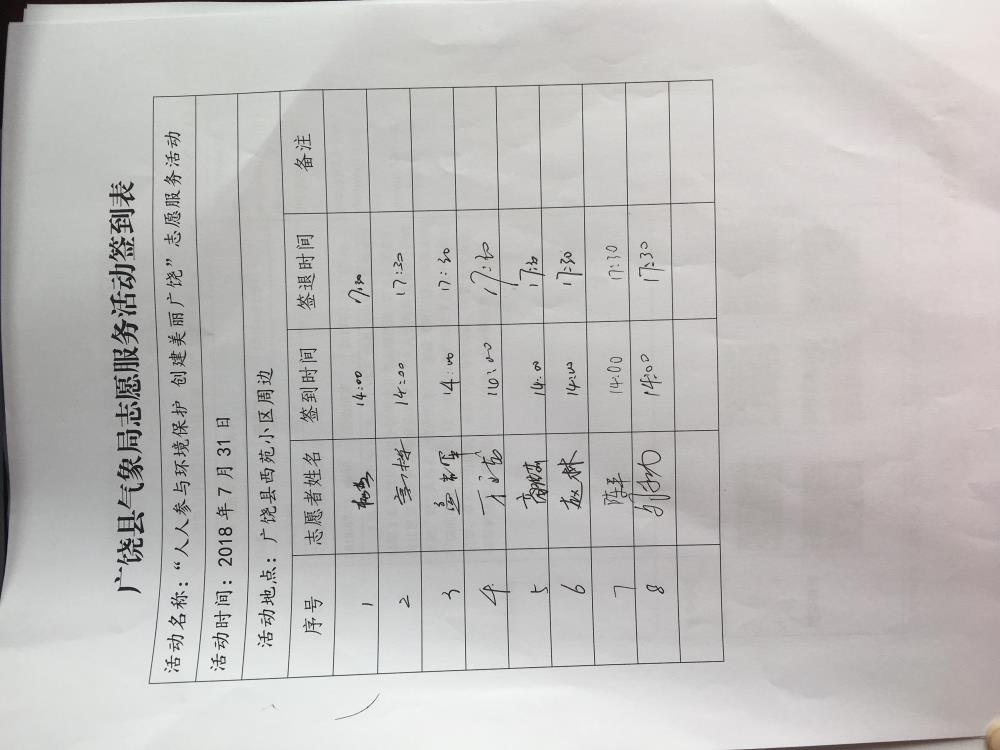 广饶县气象局志愿服务活动签到表
活动名称：“人人参与环境保护 创建美丽广饶”志愿服务活动
活动时间：2018 年 7 月 31 日
活动地点：广饶县西苑小区周边
序号 志愿者姓名 签到时间 签退时间 备注
1 14:00 17:30
2 14:00 17:30
3 14:00 17:30
4 14:00 17:30
5 14:00 17:30
6 赵林 14:00 17:30
7 陈平 14:00 17:30
8 14:00 17:30